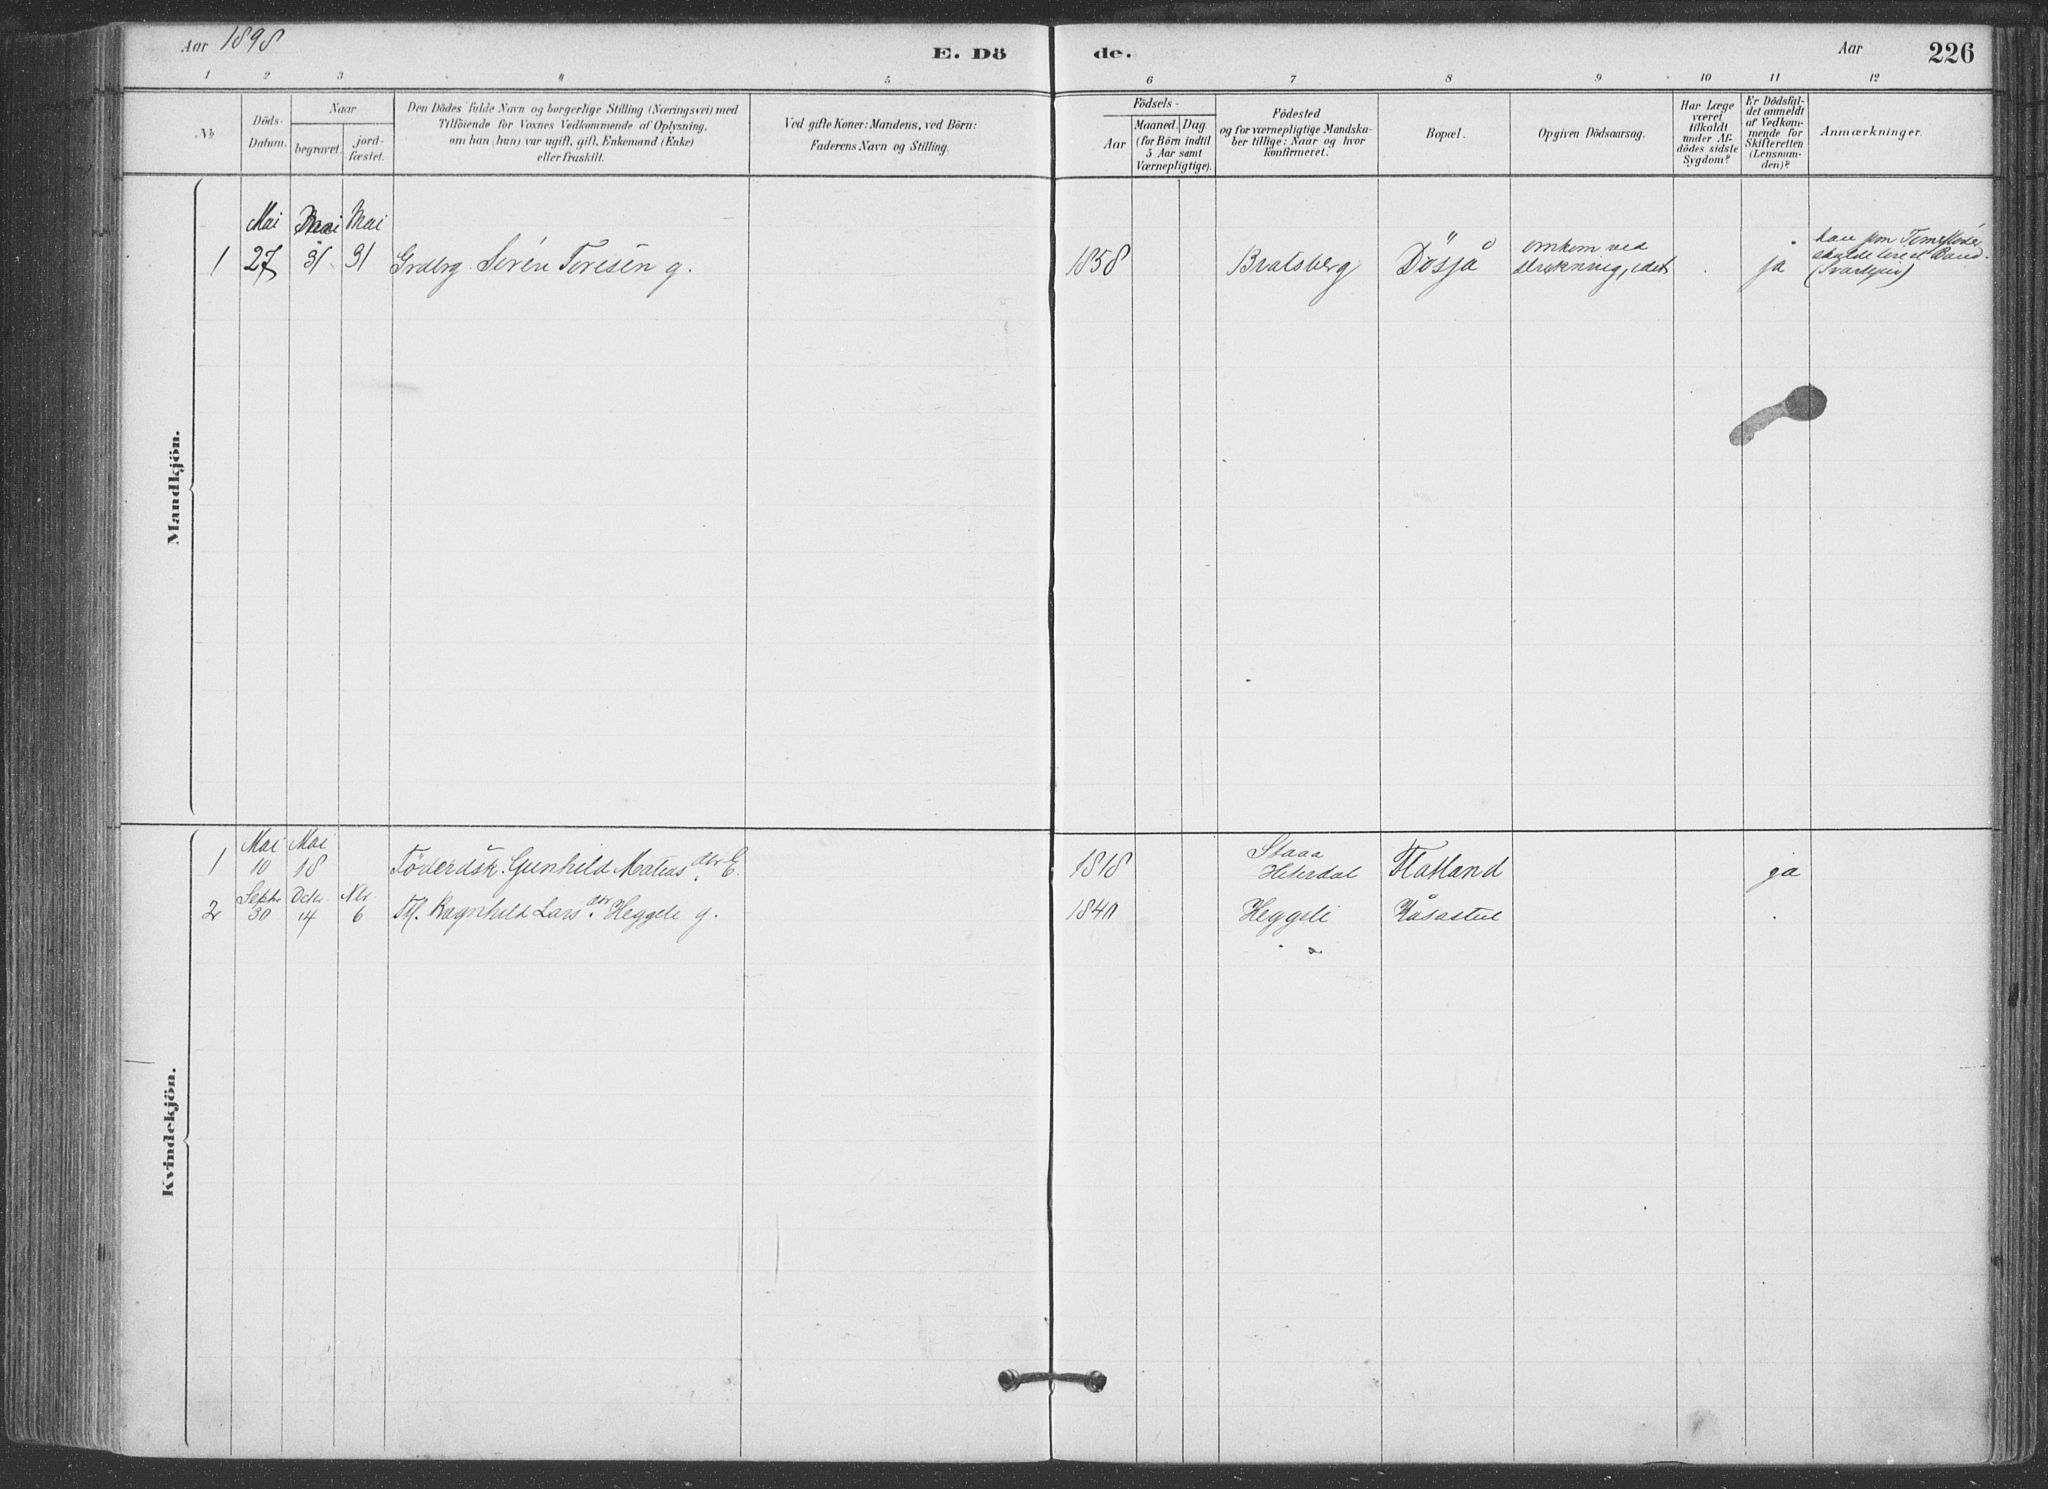 Aar 1898
E. Dö
de.
Aar
226
1 2 3 4 5 6 7 8 9 10 11 12
No
Döds-
Datum.
Naar
begravet.
jord-
fæstet.
Den Dödes fulde Navn og borgerlige Stilling (Næringsvei) med
Tilföiende for Voxnes Vedkommende af Oplysning,
om han (hun) var ugift, gift, Enkemand (Enke)
eller fraskilt.
Ved gifte Koner: Mandens, ved Börn:
Faderens Navn og Stilling.
Födsels-
Aar
Maaned. Dag.
(for Börn indtil
5 Aar samt
Værnepligtige).
Födested
og for værnepligtige Mandska-
ber tillige: Naar og hvor
konfirmeret.
Bopæl.
Opgiven Dödsaarsag.
Har Læge
været
tilkaldt
under Af-
dödes sidste
Sygdom?
Er Dödsfal-
det anmeldt
af Vedkom-
mende for
Skifteretten
(Lensman-
den)?
Anmærkninger.
Mandkjön.
Mai Mai Mai
1 27 31 31 Grdbrg. Sörén Toresén g. 1858 Bratsberg Dösjå omkom ved ja
drukning, idet
han som Tömmerflöder
skulde
Kvindekjön.
Mai Mai
1 10 18 Föderdsk. Gunhild Matias dtr. E. 1818 Staaa Flatland ja
Hiterdal
Septr. Octr. Nbr.
2 30 14 6 Ragnhild Lars dtr. Heggeli g. 1840 Heggeli Råsastul